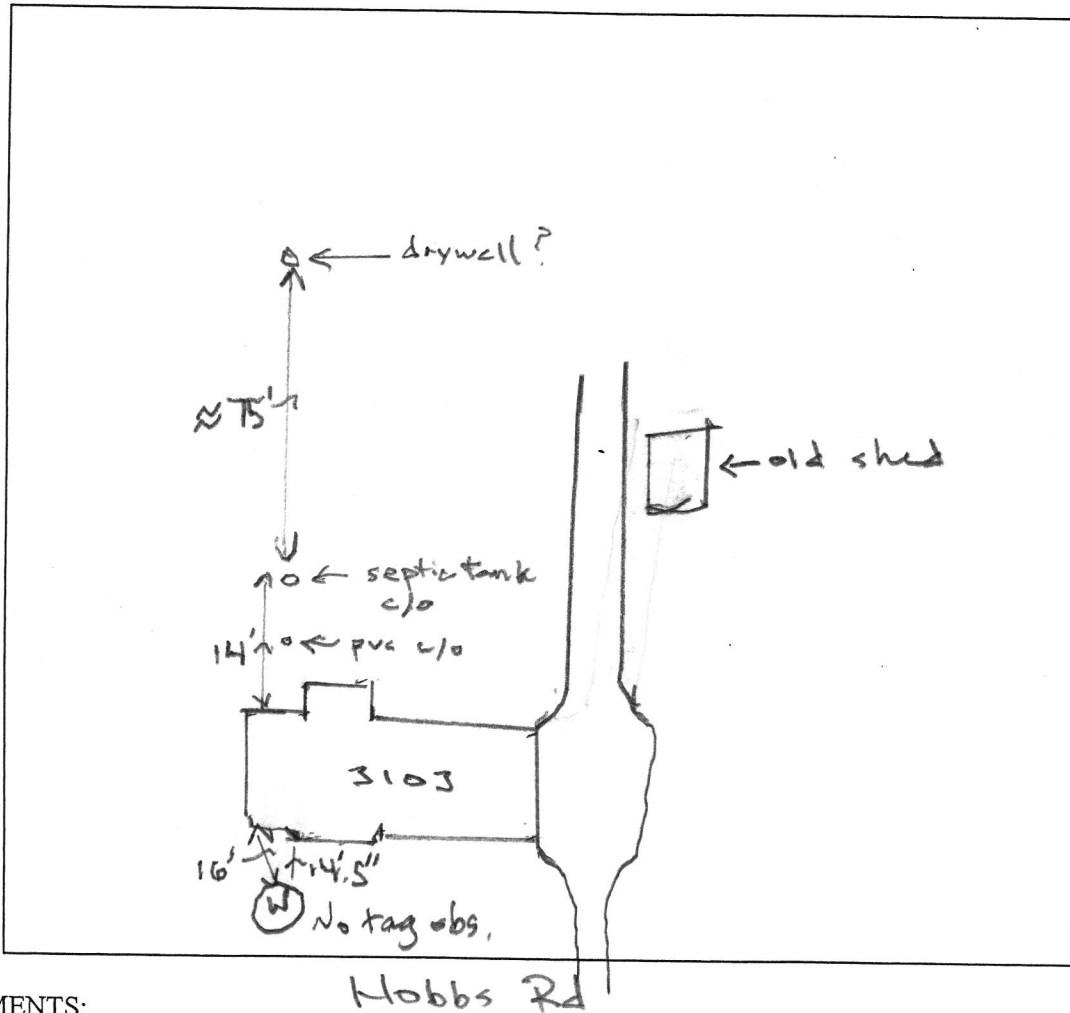 drywell?
≈ 75'
old shed
septic tank
c/o
14'
pvc c/o
3103
16'
14'.5"
W
No tag obs.
Hobbs Rd
MENTS: